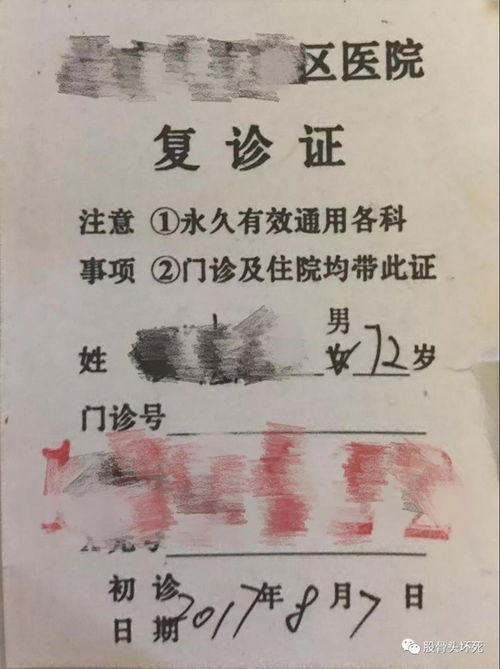 区医院
复诊证
注意 ①永久有效通用各科
事项 ②门诊及住院均带此证
姓 男 女 72岁
门诊号
初诊日期 2017年8月7日
股骨头坏死